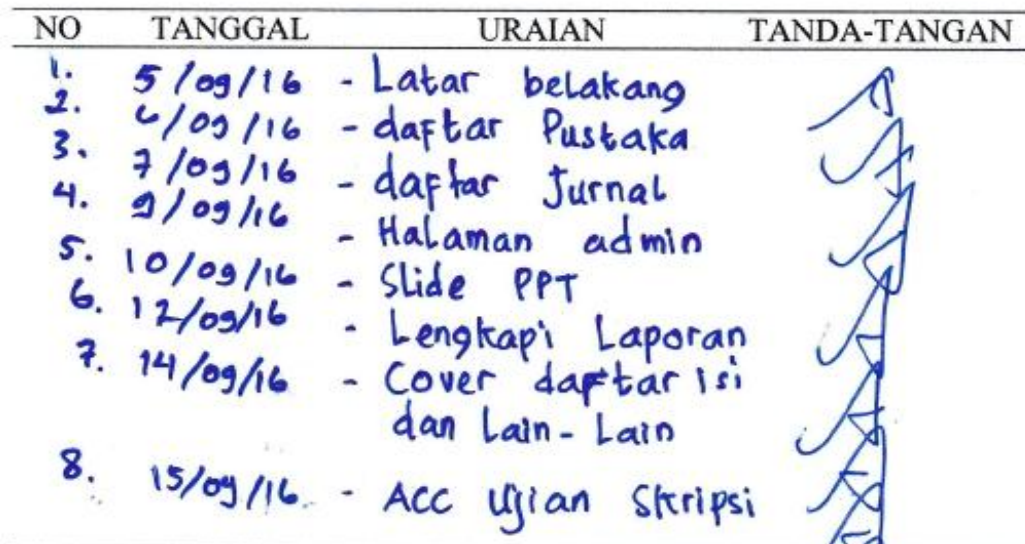 NO TANGGAL URAIAN TANDA-TANGAN
1. 5/09/16 - Latar belakang
2. 6/09/16 - daftar Pustaka
3. 7/09/16 - daftar Jurnal
4. 9/09/16 - Halaman admin
5. 10/09/16 - Slide PPT
6. 12/09/16 - Lengkapi Laporan
7. 14/09/16 - Cover daftar isi
dan Lain-Lain
8. 15/09/16 - ACC Ujian Skripsi